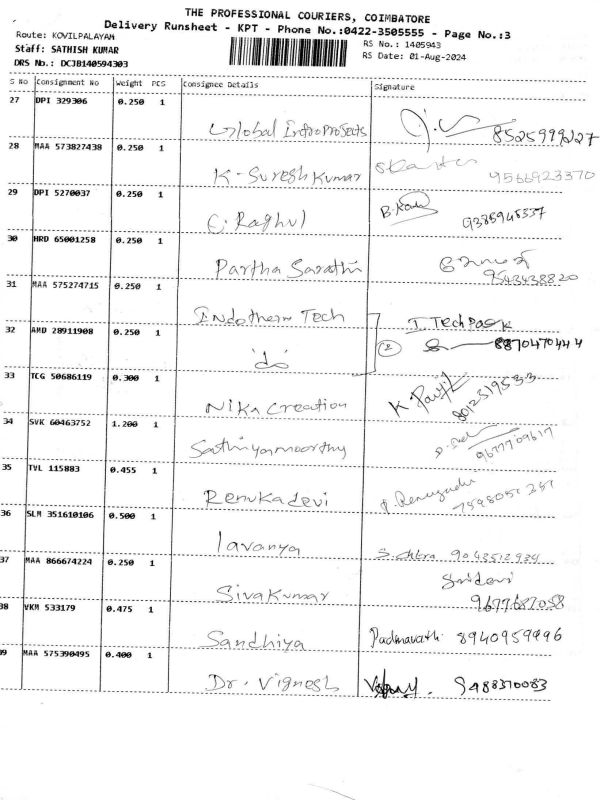 THE PROFESSIONAL COURIERS, COIMBATORE
Delivery Runsheet - KPT - Phone No.:0422-3505555 - Page No.:3
Route: KOVILPALAYAM
RS No.: 1405943
Staff: SATHISH KUMAR
RS Date: 01-Aug-2024
DRS No.: DCJB140594303
S No Consignment No Weight PCS Consignee Details Signature
27 DPI 329306 0.250 1
Global Infro Projects 8525999227
28 MAA 573827438 0.250 1
K. Suresh Kumar 9566923370
29 DPI 5270037 0.250 1
C. Raghul 9385945537
30 HRD 65001258 0.250 1
Partha Sarathi 9543438820
31 MAA 575274715 0.250 1
Indotherm Tech I. Tech Pack
32 AMD 28911908 0.250 1
do 2 8870470444
33 TCG 50686119 0.300 1
Nika Creation K 8012519533
34 SVK 60463752 1.200 1
Sathiyamoorthy 9677709617
35 TVL 115883 0.455 1
Renukadevi
36 SLM 351610106 0.500 1
lavanya S. Chitra 9043512934
37 MAA 866674224 0.250 1
Sivakumar Sridevi
9677687058
38 VKM 533179 0.475 1
Sandhiya Padmavathi 8940959996
39 MAA 575390495 0.400 1
Dr. Vignesh 9488370083